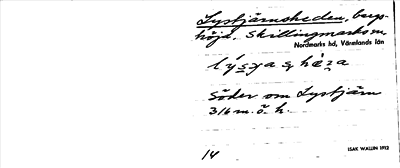 Lystjärnsheden, bergs-
höjd, Skillingmarks sn,
Nordmarks hd, Värmlands län
Söder om Lystjärn
316 m. ö. h.
14
ISAK WALLIN 1912